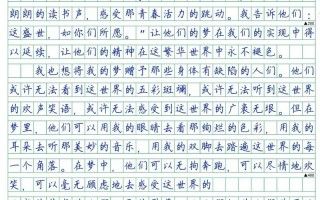 朗朗的读书声，感受那青春活力的跳动。我告诉他们：
这盛世，如你们所愿。”让他们的梦在我们的实现中得
以延续，让他们的精神在这繁华世界中永不褪色。
我也想将我的梦赠予那些身体有缺陷的人们。他们
或许无法看到这世界的五彩斑斓，或许无法听到这世界
的欢声笑语，或许无法感受到这世界的广袤无垠。但在
梦里，他们可以用我的眼睛去看那绚烂的色彩，用我的
耳朵去听那美妙的音乐，用我的双脚去踏遍这世界的每
一个角落。在梦中，他们可以无拘奔跑，可以尽情地欢
笑，可以毫无顾虑地去感受这世界的